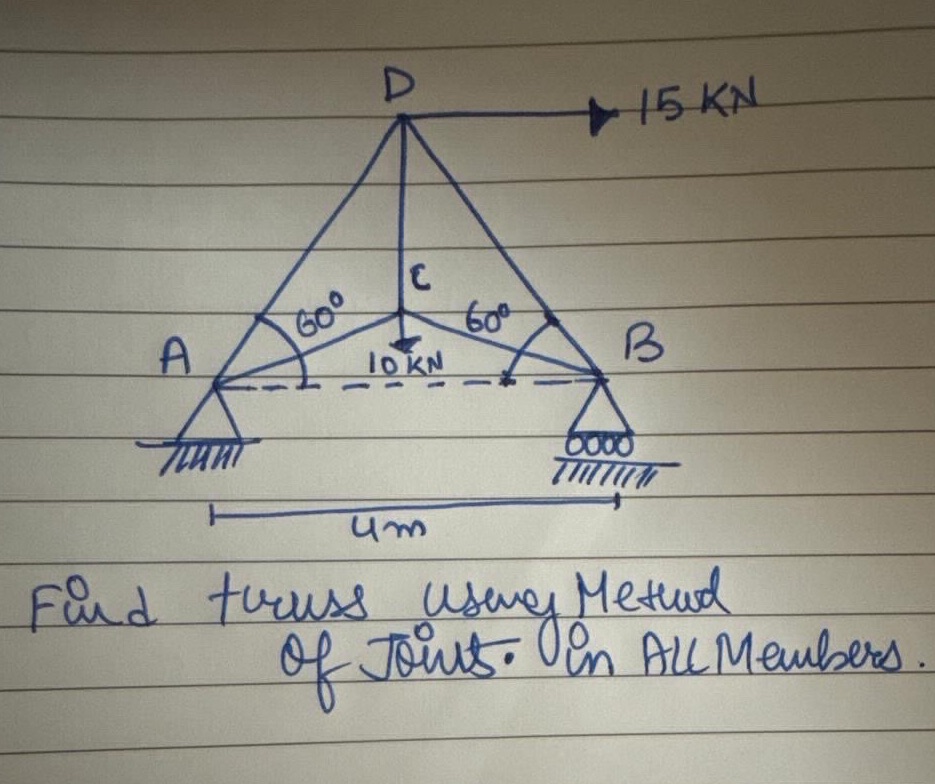 D
15 KN
C
60°
60°
A
B
10 KN
4m
Find truss using Method
Of Joint. in All Members.